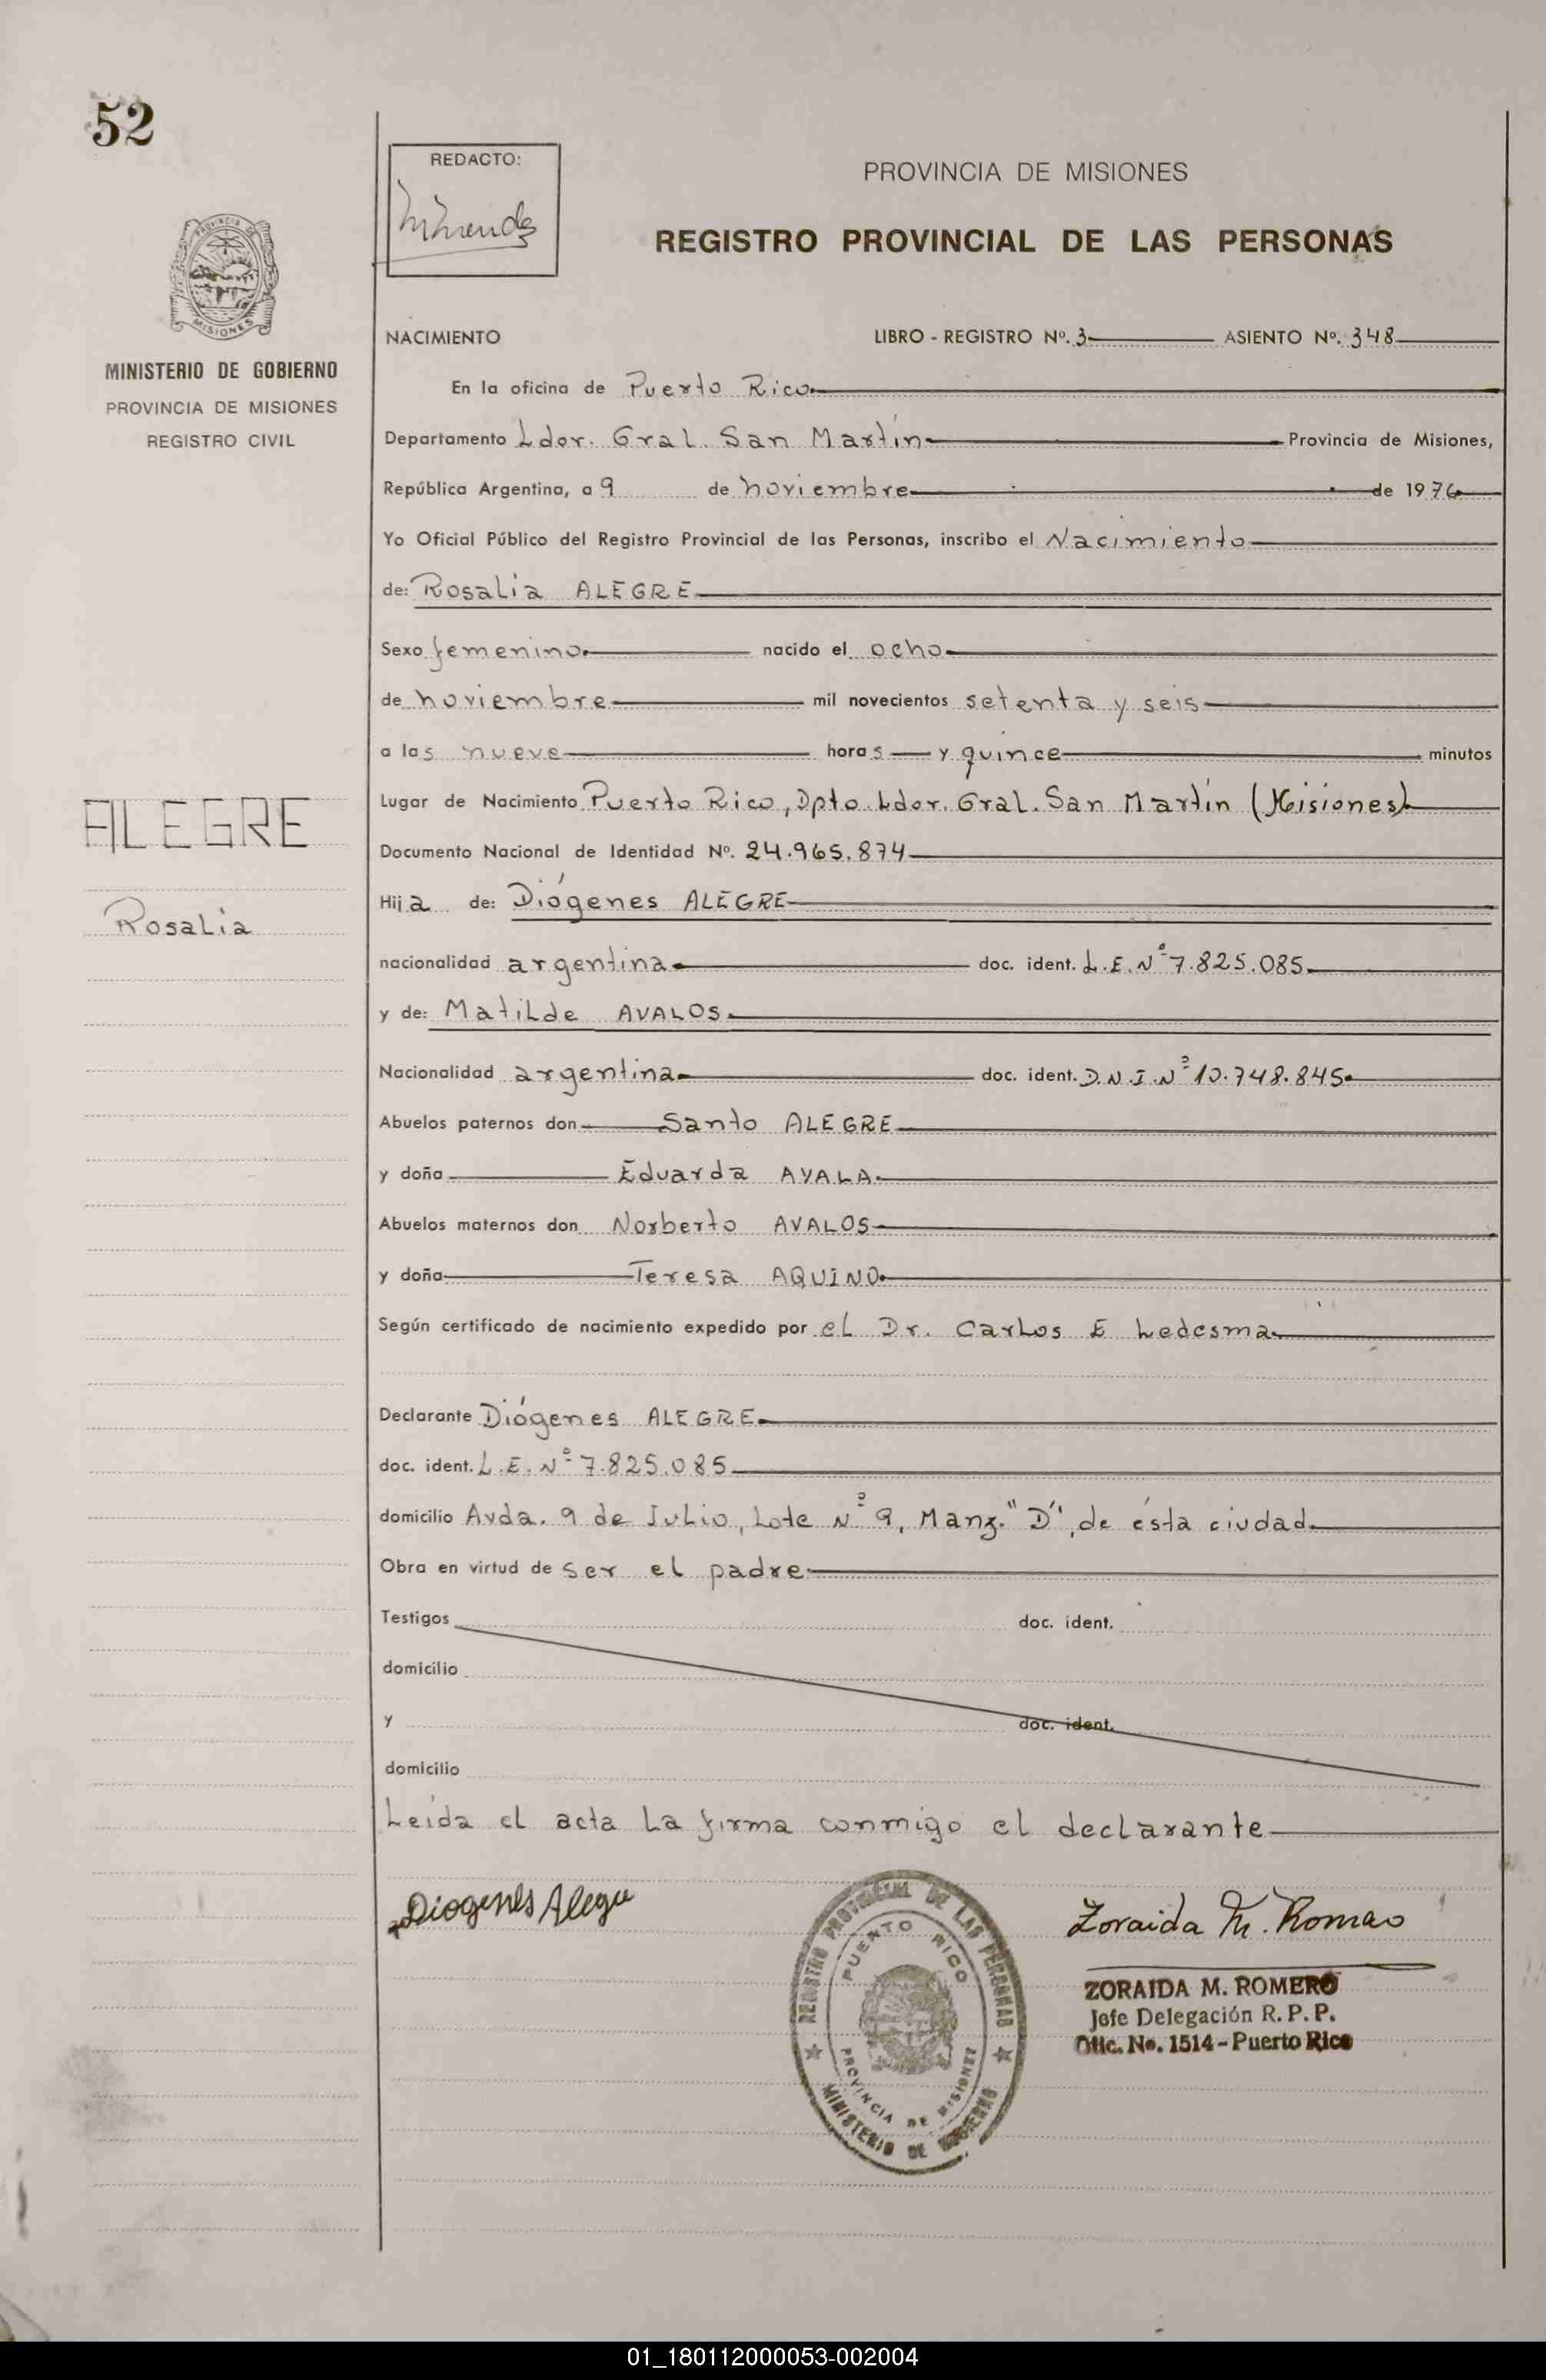 52
REDACTO:
PROVINCIA DE MISIONES
REGISTRO PROVINCIAL DE LAS PERSONAS
PROVINCIA DE
MISIONES
MINISTERIO DE GOBIERNO
PROVINCIA DE MISIONES
REGISTRO CIVIL
NACIMIENTO LIBRO - REGISTRO Nº. 3 ASIENTO Nº. 348
En la oficina de Puerto Rico
Departamento Ldor. Gral. San Martín Provincia de Misiones,
República Argentina, a 9 de noviembre de 1976
Yo Oficial Público del Registro Provincial de las Personas, inscribo el Nacimiento
de: Rosalia ALEGRE
Sexo femenino nacido el ocho
de noviembre mil novecientos setenta y seis
a las nueve horas y quince minutos
Lugar de Nacimiento Puerto Rico, Dpto. Ldor. Gral. San Martín (Misiones)
ALEGRE
Documento Nacional de Identidad Nº. 24.965.874
Hija de: Diógenes ALEGRE
Rosalia
nacionalidad argentina doc. ident. L.E. Nº 7.825.085
y de: Matilde AVALOS
Nacionalidad argentina doc. ident. D.N.I. Nº 10.748.845
Abuelos paternos don Santo ALEGRE
y doña Eduarda AYALA
Abuelos maternos don Norberto AVALOS
y doña Teresa AQUINO
Según certificado de nacimiento expedido por el Dr. Carlos E Ledesma
Declarante Diógenes ALEGRE
doc. ident. L.E. Nº 7.825.085
domicilio Avda. 9 de Julio, Lote Nº 9, Manz. "D", de ésta ciudad
Obra en virtud de ser el padre
Testigos doc. ident.
domicilio
y doc. ident.
domicilio
Leída el acta la firma conmigo el declarante
Diogenes Alegre
Zoraida M. Romero
REGISTRO PROVINCIAL DE LAS PERSONAS
PUERTO RICO
PROVINCIA DE MISIONES
MINISTERIO DE GOBIERNO
ZORAIDA M. ROMERO
Jefe Delegación R. P. P.
Ofic. No. 1514 - Puerto Rico
01_180112000053-002004